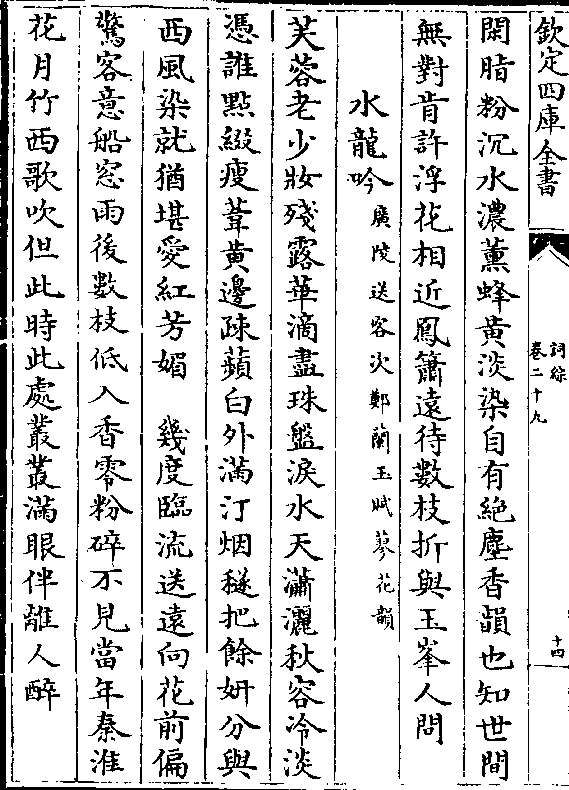 欽定四庫全書
詞綜
卷二十九
十四
閑脂粉沉水濃薰蜂黄淡染自有絶塵香韻也知世間
無對肯許浮花相近鳳簫遠待數枝折與玉峯人問
水龍吟廣陵送客次鄭蘭玉賦蓼花韻
芙蓉老少妝殘露華滴盡珠盤淚水天瀟灑秋容冷淡
憑誰㸃綴瘦葦黄邊疎蘋白外滿汀烟穟把餘妍分與
西風染就猶堪愛紅芳媚 幾度臨流送遠向花前偏
驚客意船窓雨後數枝低入香零粉碎不見當年秦淮
花月竹西歌吹但此時此處叢叢滿眼伴離人醉